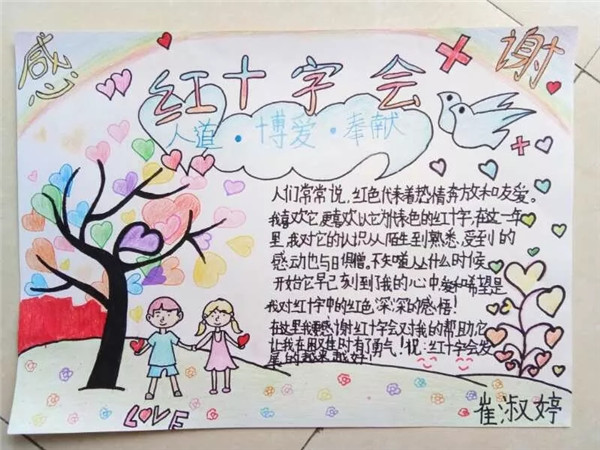 感
谢
红十字会
人道·博爱·奉献
人们常常说,红色代表着热情奔放和友爱。
我喜欢它,更喜欢以它为代表色的红十字,在这一年
里,我对它的认识从陌生到熟悉,受到的
感动也与日俱增,不知道从什么时候
开始它早已刻到了我的心中爱和希望是
我对红十字中的红色深深的感悟!
在这里我要感谢红十字会对我的帮助,它
让我在困难时有了勇气!祝:红十字会发
展的越来越好!
LOVE
崔淑婷